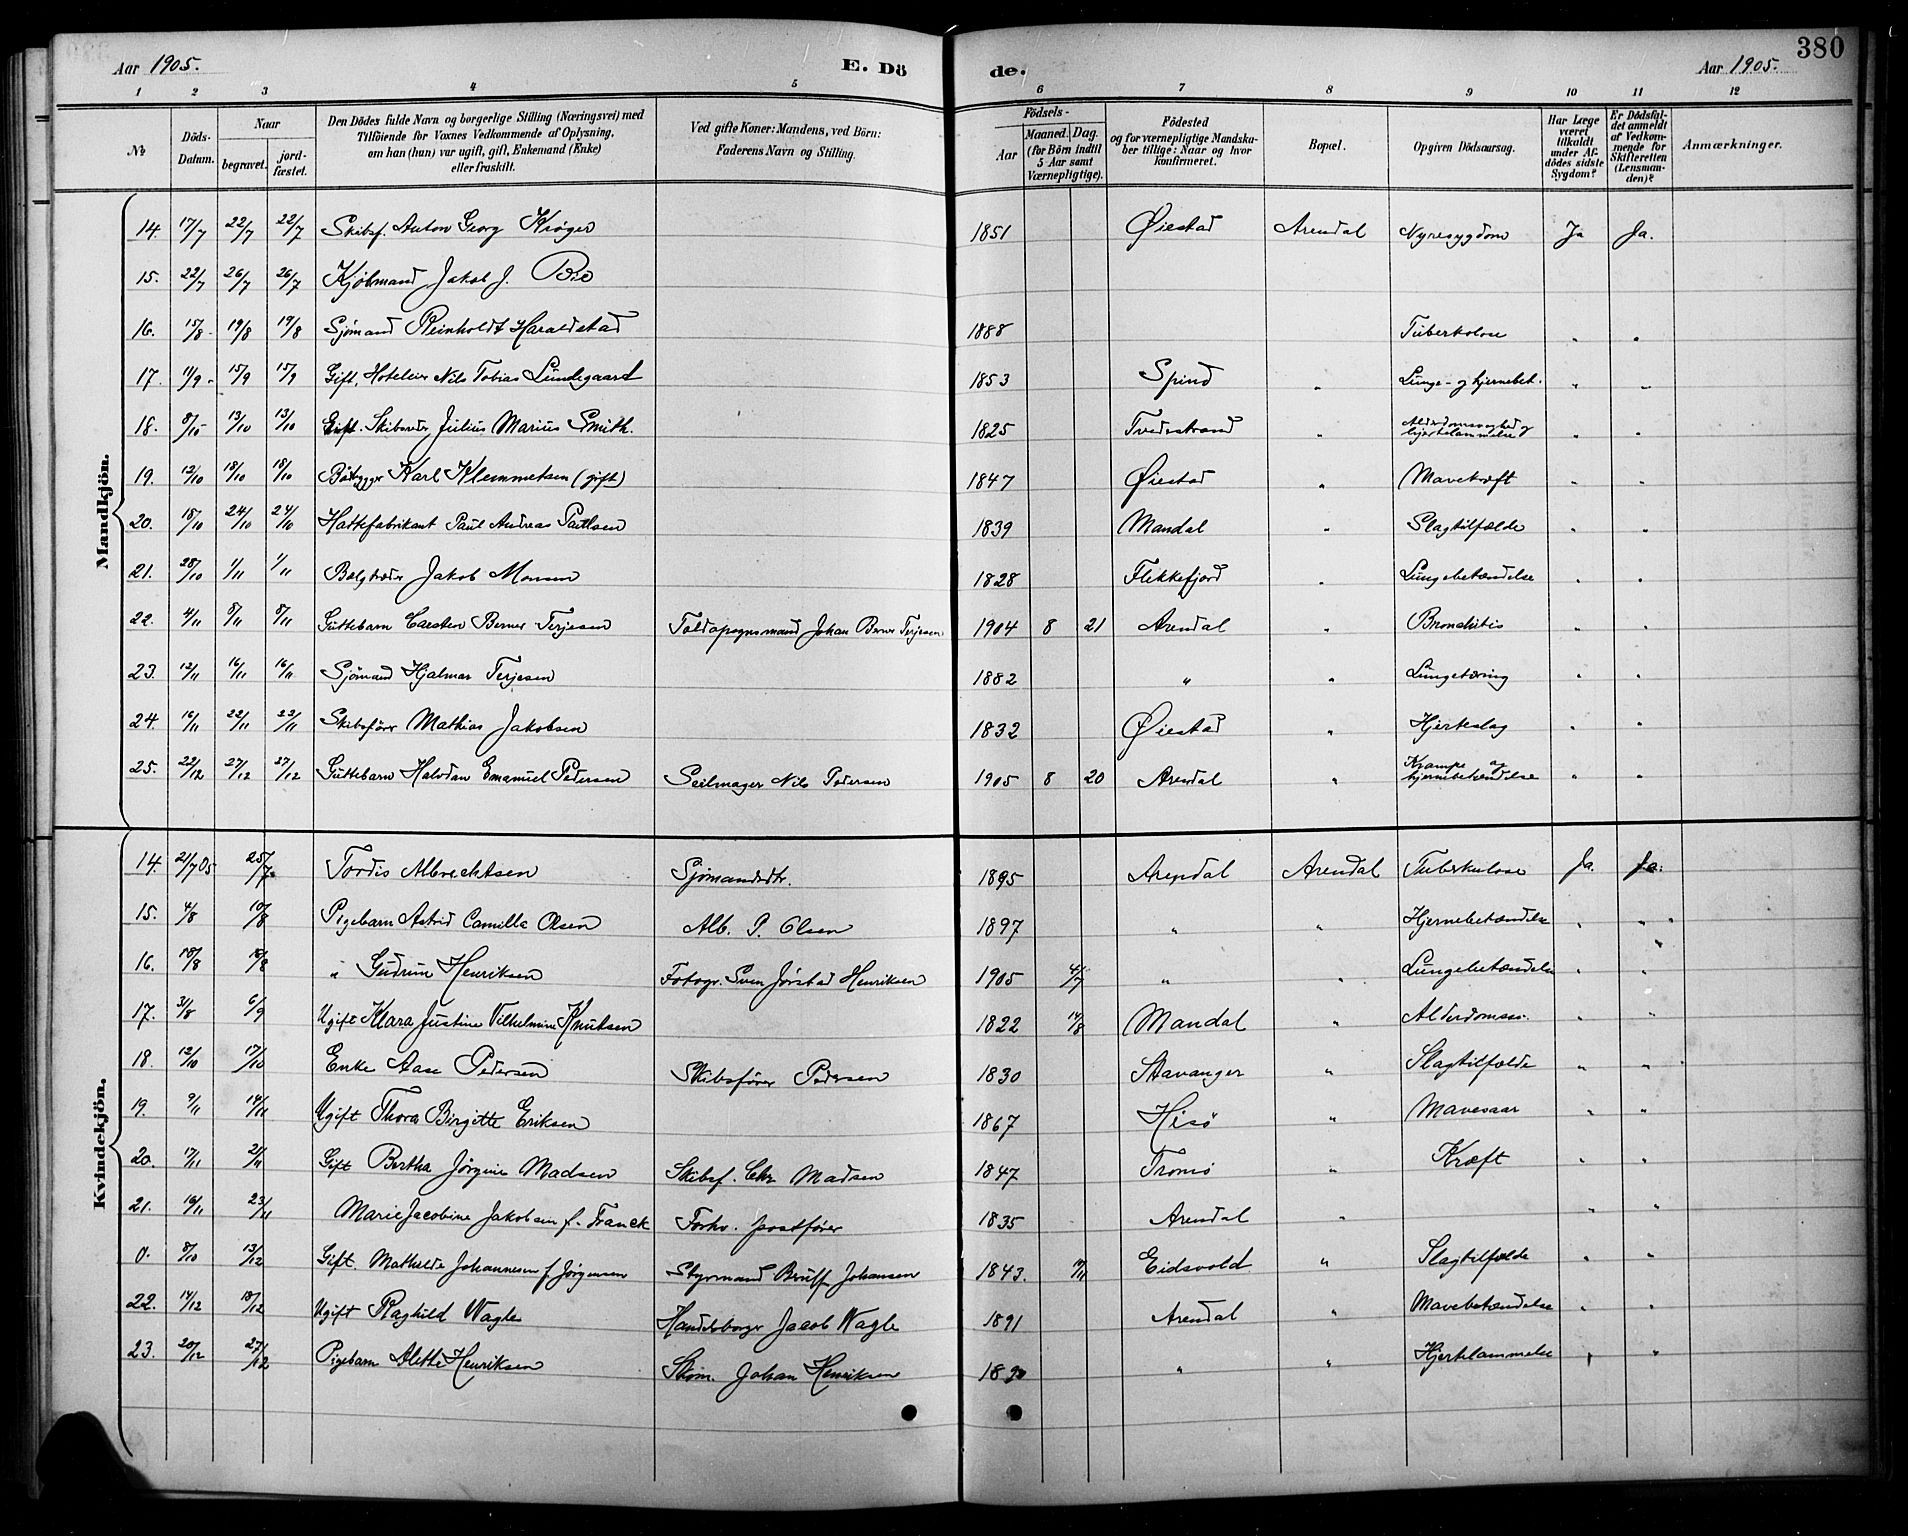 Aar 1905. E. Dö de. Aar 1905. 380
1 2 3 4 5 6 7 8 9 10 11 12
№ Döds-Datum. Naar begravet. jord-fæstet. Den Dödes fulde Navn og borgerlige Stilling (Næringsvei) med Tilföiende for Voxnes Vedkommende af Oplysning, om han (hun) var ugift, gift, Enkemand (Enke) eller fraskilt. Ved gifte Koner: Mandens, ved Börn: Faderens Navn og Stilling. Födsels- Aar Maaned. Dag. (for Börn indtil 5 Aar samt Værnepligtige). Födested og for værnepligtige Mandskaber tillige: Naar og hvor konfirmeret. Bopæl. Opgiven Dödsaarsag. Har Læge været tilkaldt under Afdödes sidste Sygdom? Er Dödsfaldet anmeldt af Vedkommende for Skifteretten (Lensmanden)? Anmærkninger.
Mandkjön.
14. 17/7 22/7 22/7 Skibsf. Anton Georg Krøger 1851 Øiestad Arendal Nyresygdom Ja Ja.
15. 22/7 26/7 26/7 Kjøbmand Jakob J.
16. 15/8 19/8 19/8 Sjømand Reinholdt Haraldstad 1888 Tuberkolose " "
17. 11/9 15/9 15/9 Gift, Hoteleier Nils Tobias Lundegaard 1853 Spind " Lunge- og hjernebet. " "
18. 8/10 13/10 13/10 Gift. Skibsreder Julius Marius Smith. 1825 Tvedestrand " Alderdomssvaghed og hjertelammelse " "
19. 12/10 18/10 18/10 Baadbygger Karl Klemmetsen (gift) 1847 Øiestad " Mavekræft " "
20. 18/10 24/10 24/10 Hattefabrikant Paul Andreas Paulsen 1839 Mandal " Slagtilfælde " "
21. 28/10 1/11 1/11 Jakob Monsen 1828 Flekkefjord " Lungebetændelse " "
22. 4/11 8/11 8/11 Guttebarn Carsten Berner Terjesen Toldopsynsmand Johan Berner Terjesen 1904 8 21 Arendal " Bronchitis " "
23. 12/11 16/11 16/11 Sjømand Hjalmar Terjesen 1882 " " Lungetæring " "
24. 16/11 22/11 22/11 Skibsfører Mathias Jakobsen 1832 Øiestad " Hjerteslag " "
25. 22/12 27/12 27/12 Guttebarn Halvdan Emanuel Pedersen Seilmager Nils Pedersen 1905 8 20 Arendal " Krampe og hjernebetændelse " "
Kvindekjön.
14. 21/7 05 25/7 Tordis Albrechtsen Sjømandsdtr. 1895 Arendal Arendal Tuberkulose Ja. Ja.
15. 4/8 10/8 Pigebarn Astrid Camilla Olsen Alb. P. Olsen 1897 " " Hjernebetændelse " " "
16. 18/8 " Gudrun Henriksen Fotogr. Sven Jørstad Henriksen 1905 4/7 " " Lungebetændelse " "
17. 31/8 6/9 Ugift Klara Justine Vilhelmine Knutsen 1822 14/8 Mandal " Alderdomss. " "
18. 12/10 17/10 Enke Aase Pedersen Skibsfører Pedersen 1830 Stavanger " Slagtilfælde " "
19. 9/11 14/11 Ugift Thora Birgitte Eriksen 1867 Hisø " Mavesaar " "
20. 17/11 21/11 Gift Bertha Jørgine Madsen Skibsf. Chr Madsen 1847 Tromø " Kræft " "
21. 16/11 23/11 Marie Jacobine Jakobsen f. Franck Forhv. postfører 1835 Arendal " " "
0. 8/10 13/12 Gift. Mathilde Johannesen f Jørgensen Styrmand Johansen 1843. Eidsvold " Slagtilfælde " "
22. 14/12 18/12 Ugift Ragnhild Wagle Handelsborger Jacob Wagle 1891 Arendal " Mavebetændelse " "
23. 20/12 27/12 Pigebarn Alette Henriksen Johan Henriksen " " Hjertelammelse " "